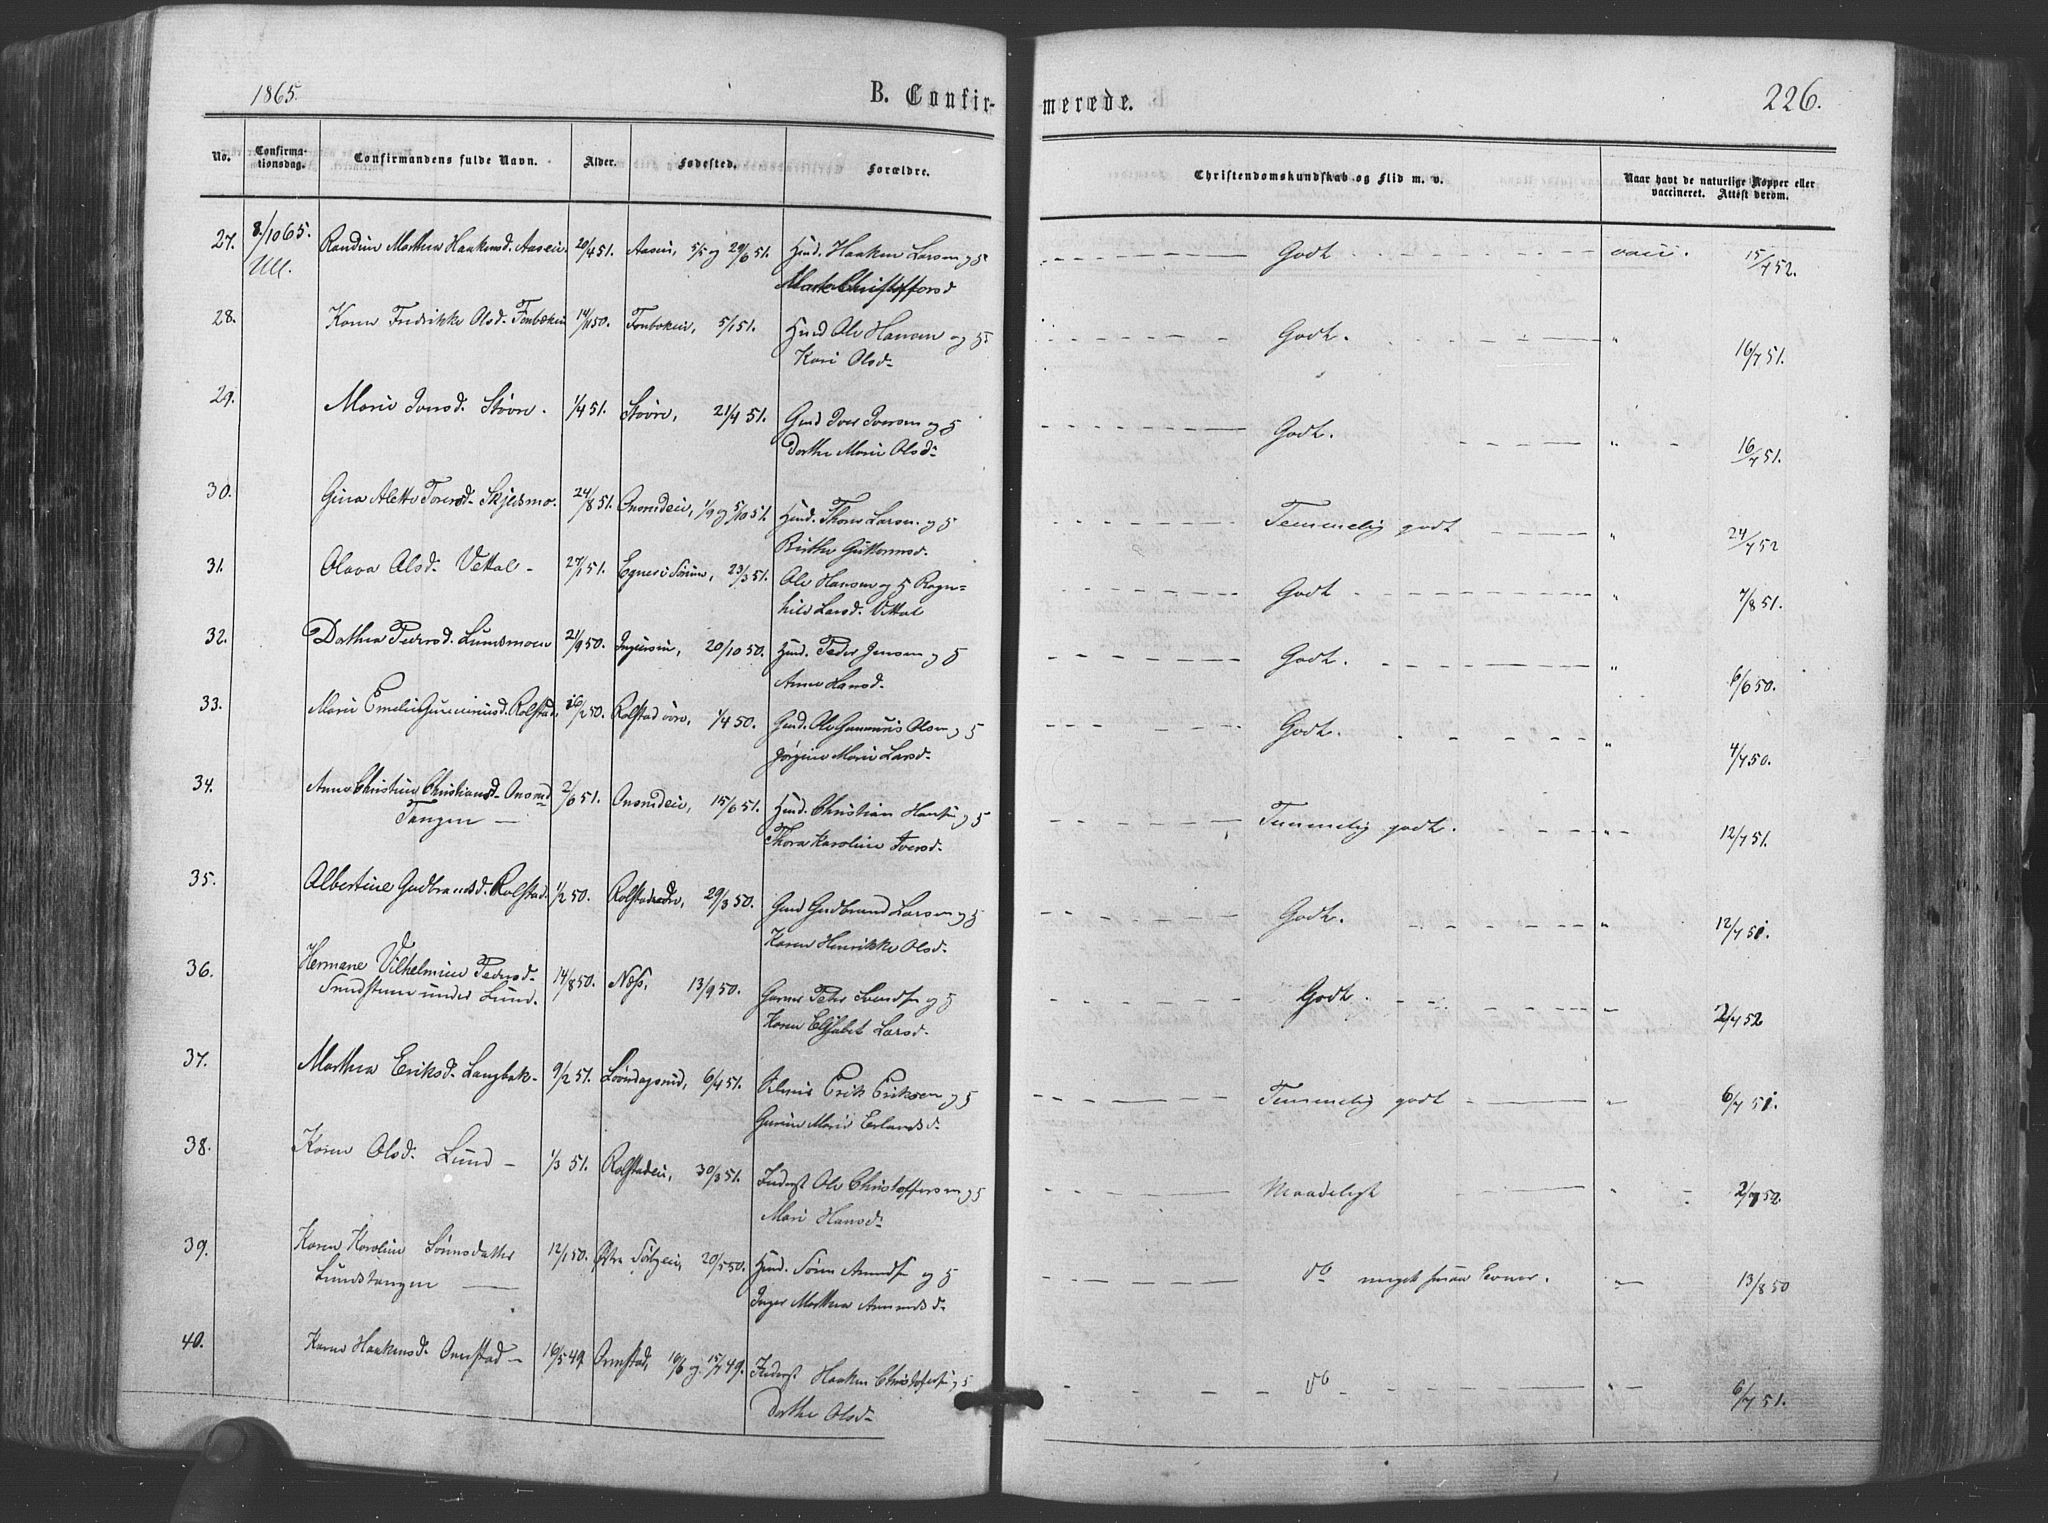 1865.
B. Confir-
merede.
226.
No.
Confirma-
tionsdag.
Confirmandens fulde Navn.
Alder.
Fødested.
Forældre.
Christendomskundskab og Flid m. v.
Naar havt de naturlige Kopper eller
vaccineret. Attest derom.
27. 8/10 65. Randine Marthea Haakensd. Aaseie. 20/4 51. Aaseie, 5/5 og 29/6 51. Hmd. Haaken Larsen og H Godt vacc. 15/7 52.
Ull. Marte Christoffersd
28. Karen Fredrikke Olsd. Fonbækei 14/1 50. Fonbekeie, 5/1 51. Hmd Ole Hansen og H Godt. " 16/7 51.
Kari Olsd.
29. Marie Iversd. Støvre. 1/4 51. Støvre, 21/4 51. Gmd Iver Iversen og H Godt. " 16/7 51.
Dorthe Marie Olsd.
30. Gina Alette Toversd. Skjelsmo. 24/8 51. Onsrudeie, 1/9 og 5/10 51. Hmd. Thore Larsen og H Temmelig godt " 24/7 52
Birthe Guttormsd.
31. Olava Olsd. Vettal 27/1 51. Egner i Sørum, 23/3 51. Ole Hansen og H Ragn-
hild Larsd. Vettal Godt " 7/8 51.
32. Dorthea Pedersd. Lundsmoen 21/9 50. 20/10 50. Hmd. Peder Jensen og H Godt. " 6/6 50.
Anne Larsd.
33. Marie Emelie Gunneriusd. Rolstad, 16/2 50. Rolstad øvre, 1/4 50. Gmd. Ole Gunnerius Olsen og H Godt. " 4/7 50.
Jørgine Marie Larsd.
34. Anne Christine Christiansd. Onsrud 2/6 51. Onsrudeie, 15/6 51. Hmd. Christian Hansen og H Temmelig godt. " 12/7 51.
Tangen Thora Karoline Iversd.
35. Albertine Gudbransd. Rolstad. 1/2 50. Rolstad nedre, 29/3 50. Gmd Gudbrand Larsen og H Godt. " 12/7 51.
Karen Henrikke Olsd.
36. Hermane Vilhelmine Pedersd. 14/8 50. Næs. 13/9 50. Garver Peter Svends. og H Godt. " 2/7 52
under Lund. Karen Elisabet Larsd.
37. Marthea Eriksd. Langbak 9/2 51. 6/4 51. Erik Eriksen og H Temmelig godt " 6/7 51.
Gurine Marie Erlandsd.
38. Karen Olsd. Lund 1/3 51. Rolstadeie, 30/3 51. Inderst Ole Christoffersen og H Maadeligt 2/7 52.
Mari Hansd.
39. Karen Karoline Sørensdatter 12/1 50. Østre 20/5 50. Hmd. Søren Amunds. og H do meget smaa Evner. " 13/8 50
Lundstangen Inger Marthea Amundsd.
40. Karen Haakensd. Ormstad 16/5 49 Ormstad, 10/6 og 15/7 49. Inderst Haaken Christofers. og H do " 6/7 51.
Dorthe Olsd.